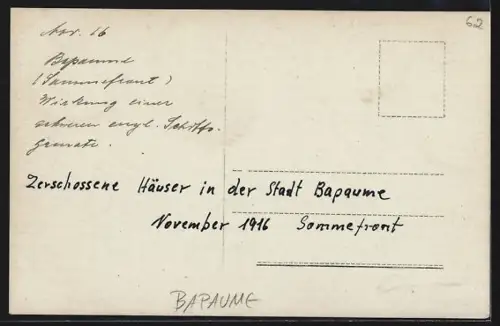 62
Nov. 16
Bapaume
(Sommefront)
Wirkung einer
schweren engl. Schiffs-
granate.
Zerschossene Häuser in der Stadt Bapaume
November 1916 Sommefront
BAPAUME